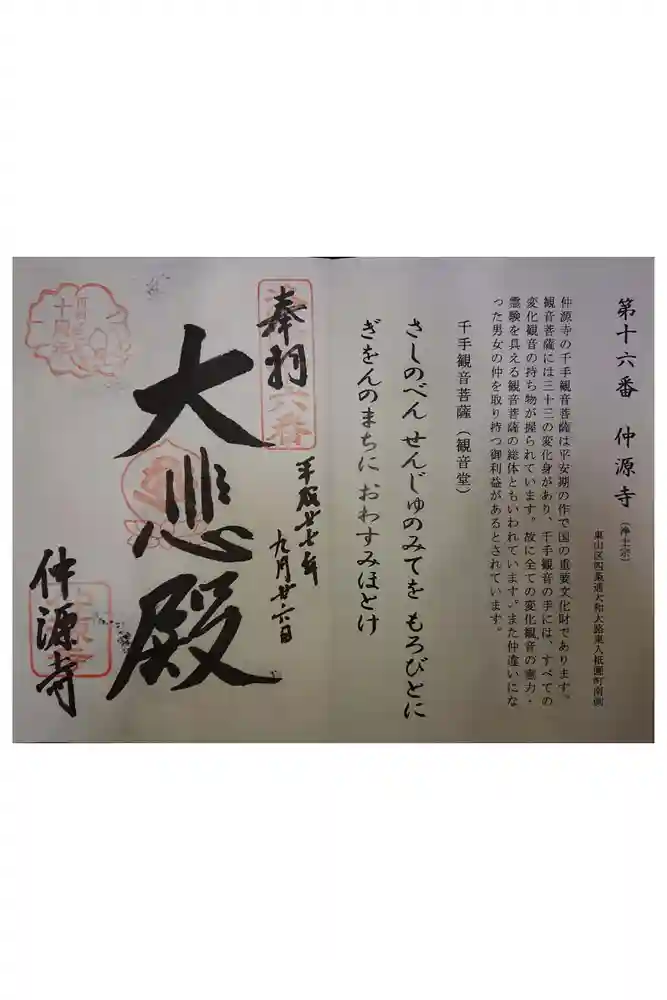 第十六番　仲源寺（浄土宗）
東山区四条通大和大路東入祇園町南側
仲源寺の千手観音菩薩は平安期の作で国の重要文化財であります。
観音菩薩には三十三の変化身があり、千手観音の手には、すべての
変化観音の持ち物が握られています。故に全ての変化観音の霊力・
霊験を具える観音菩薩の総体ともいわれています。また仲違いにな
った男女の仲を取り持つ御利益があるとされています。
千手観音菩薩（観音堂）
さしのべん せんじゅのみてを もろびとに
ぎをんのまちに おわすみほとけ
奉拝
六番
平成廿七年
九月廿六日
大悲殿
仲源寺